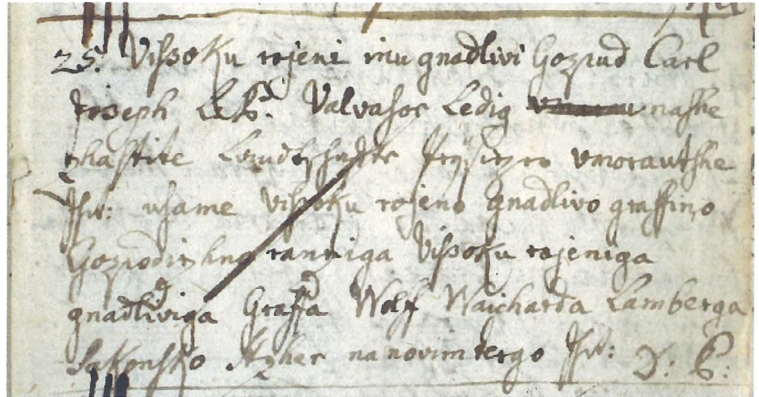 25. Vissoku rojeni inu gnadlivi Gospud Carl
Joseph Valvasor Ledig nashe
zhastite vmorautshe
Jsh: usame vissoku rojeno gnadlivo graffino
Gospodizhno ranniga Vissoku rojeniga
gnadliviga Graffa Wolf Waicharda Lamberga
Sakonsko hzher na novim tergo Jsh: